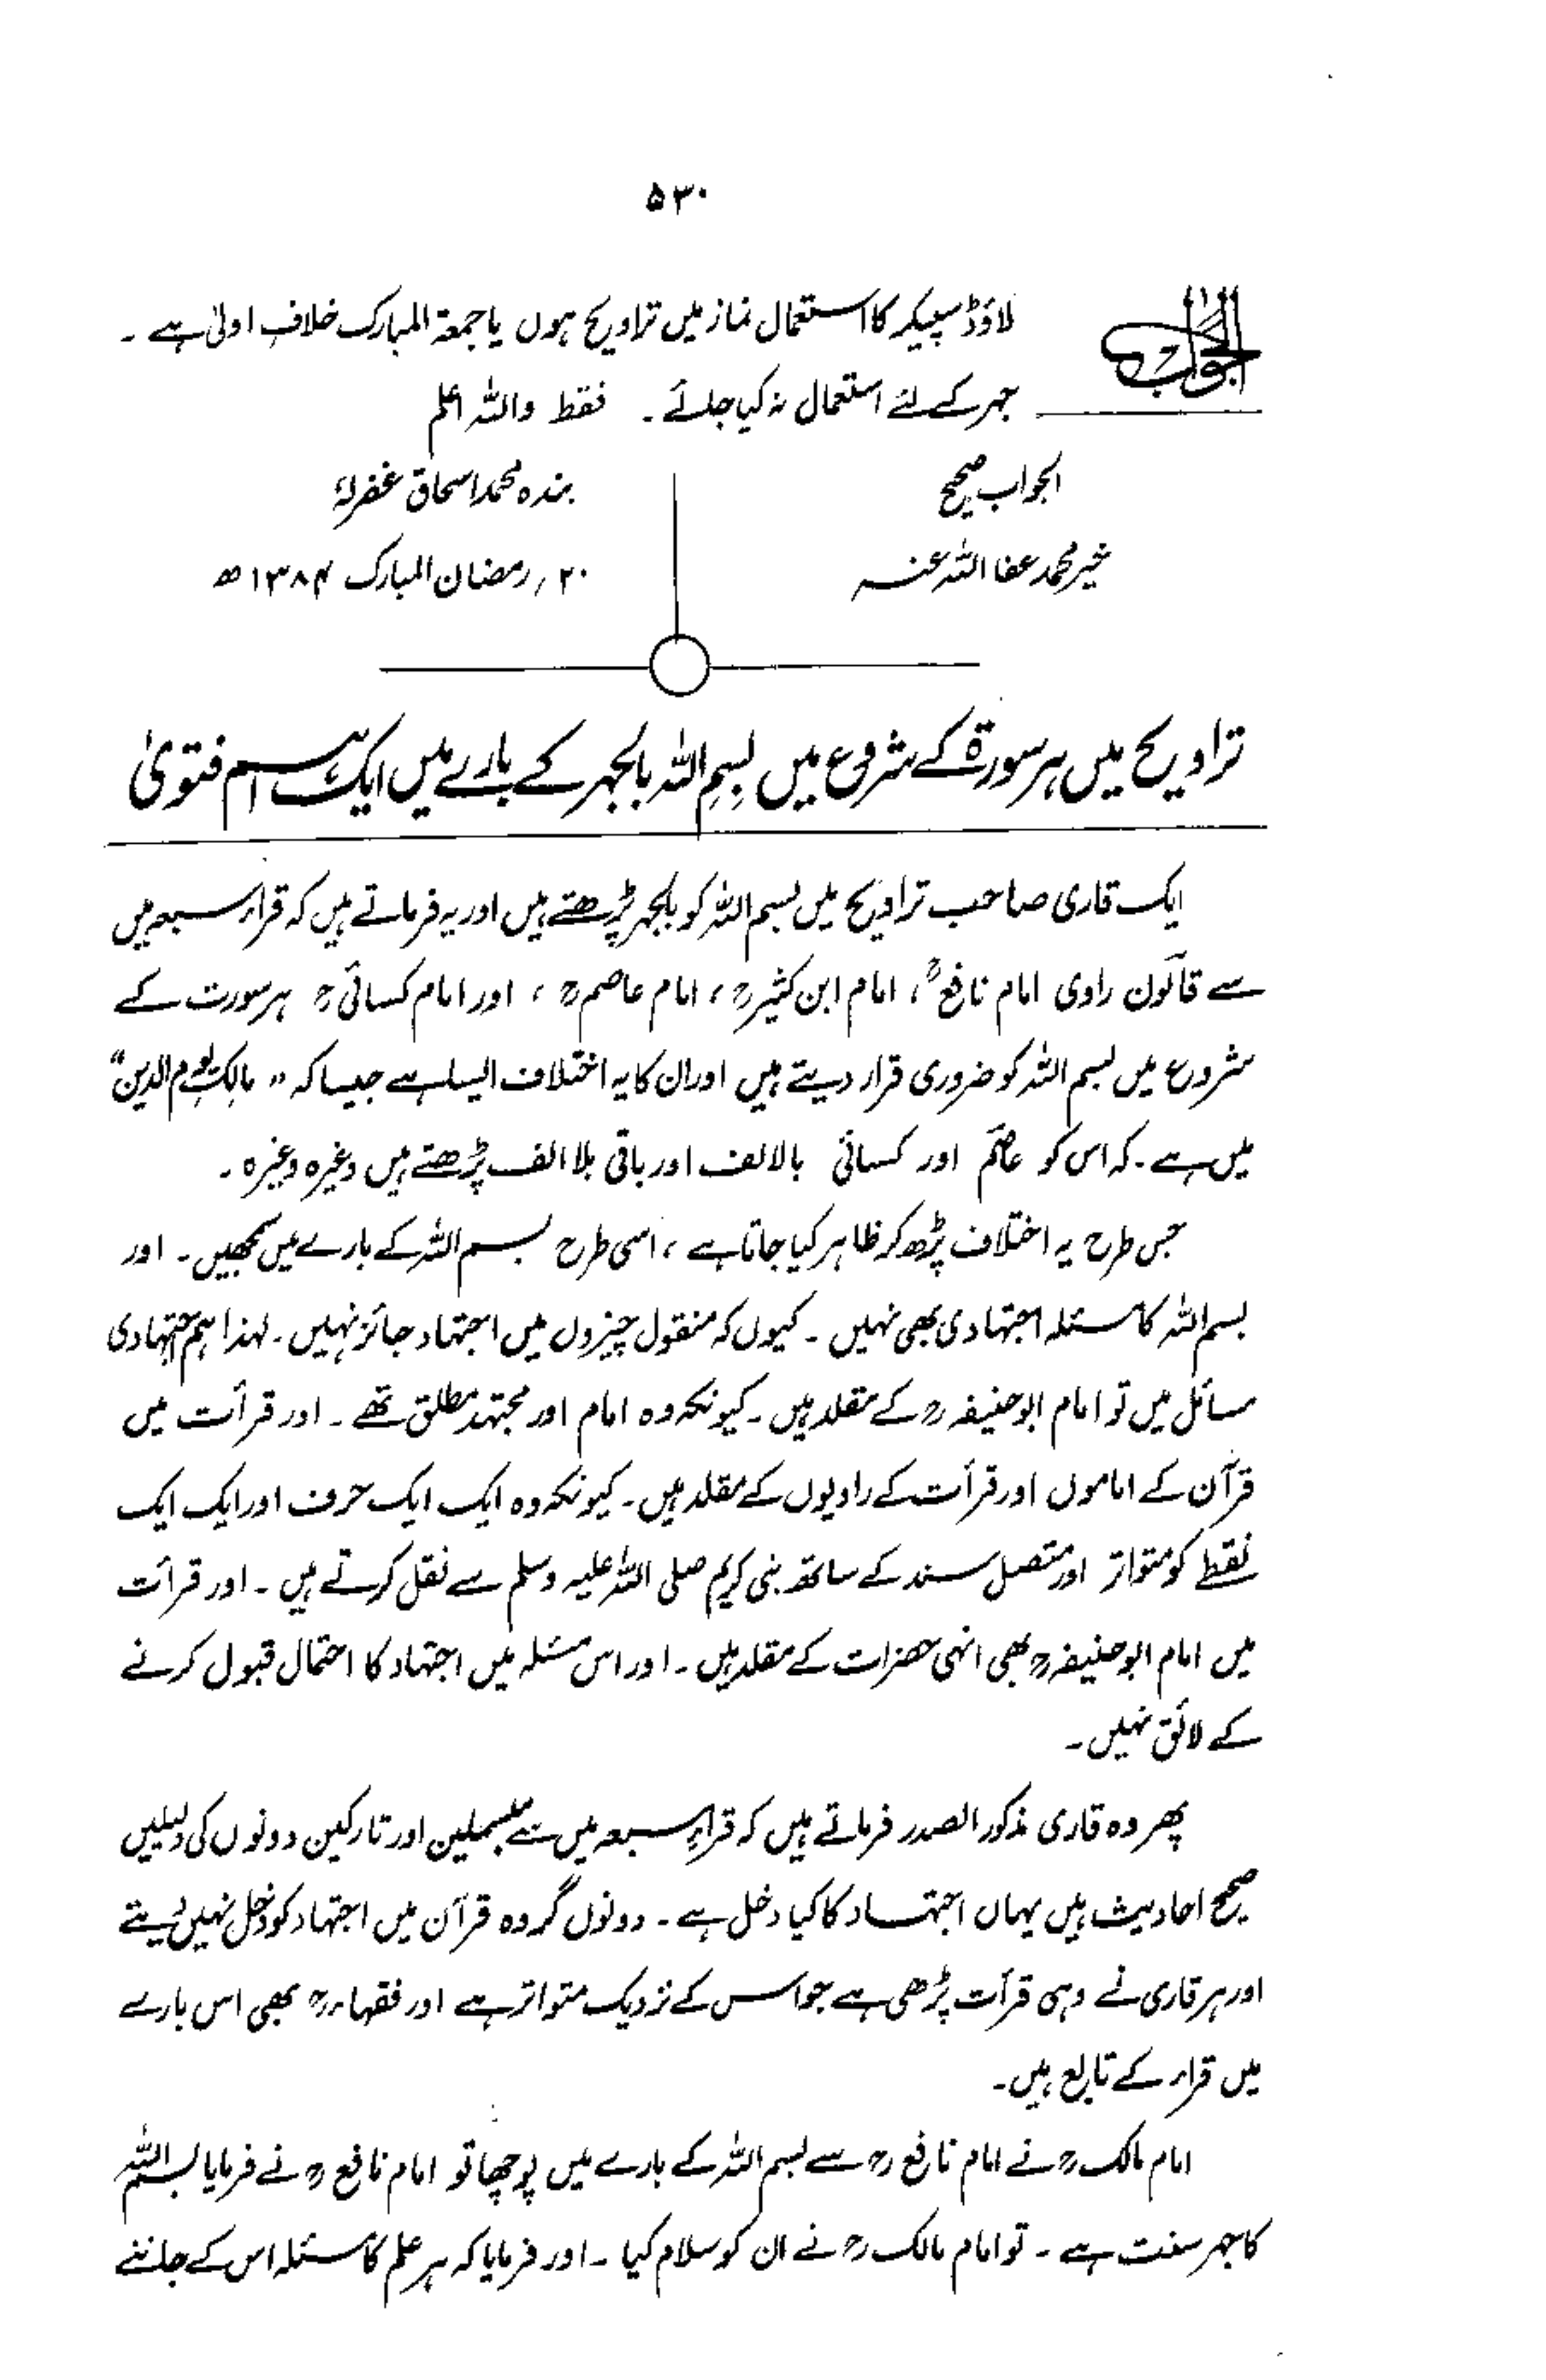 ۵۳۰
الجواب
لاؤڈ سپیکر کا استعمال نماز میں تراویح ہوں یا جمعۃ المبارک خلافِ اولیٰ ہے ۔
جہر کے لئے استعمال نہ کیا جائے ۔ فقط واللہ اعلم
الجواب صحیح
خیر محمد عفا اللہ عنہ
بندہ محمد اسحاق غفرلہٗ
۲۰ ؍ رمضان المبارک ۱۳۸۴ ھ
تراویح میں ہر سورۃ کے شروع میں بِسمِ اللہ بالجہر کے بارے میں ایک اہم فتویٰ
ایک قاری صاحب تراویح میں بسم اللہ کو بالجہر پڑھتے ہیں اور یہ فرماتے ہیں کہ قراء سبعہ میں
سے قالون راوی امام نافعؒ ، امام ابن کثیرؒ ، امام عاصمؒ ، اور امام کسائیؒ ہر سورت کے
شروع میں بسم اللہ کو ضروری قرار دیتے ہیں اور ان کا یہ اختلاف ایسا ہے جیسا کہ " مالک یوم الدین "
میں ہے ۔ کہ اس کو عاصم اور کسائی بالالف اور باقی بلا الف پڑھتے ہیں وغیرہ وغیرہ ۔
جس طرح یہ اختلاف پڑھ کر ظاہر کیا جاتا ہے ، اسی طرح بسم اللہ کے بارے میں سمجھیں ۔ اور
بسم اللہ کا مسئلہ اجتہادی بھی نہیں ۔ کیوں کہ منقول چیزوں میں اجتہاد جائز نہیں ۔ لہذا ہم اجتہادی
مسائل میں تو امام ابو حنیفہؒ کے مقلد ہیں ۔ کیونکہ وہ امام اور مجتہد مطلق تھے ۔ اور قرأت میں
قرآن کے اماموں اور قرأت کے راویوں کے مقلد ہیں ۔ کیونکہ وہ ایک ایک حرف اور ایک ایک
نقطے کو متواتر اور متصل سند کے ساتھ نبی کریم صلی اللہ علیہ وسلم سے نقل کرتے ہیں ۔ اور قرأت
میں امام ابو حنیفہؒ بھی انہی حضرات کے مقلد ہیں ۔ اور اس مسئلہ میں اجتہاد کا احتمال قبول کرنے
کے لائق نہیں ۔
پھر وہ قاری مذکور الصدر فرماتے ہیں کہ قراءِ سبعہ میں سے مبسملین اور تارکین دونوں کی دلیلیں
صحیح احادیث ہیں یہاں اجتہاد کا کیا دخل ہے ۔ دونوں گروہ قرآن میں اجتہاد کو دخل نہیں دیتے
اور ہر قاری نے وہی قرأت پڑھی ہے جو اس کے نزدیک متواتر ہے اور فقہاءؒ بھی اس بارے
میں قراء کے تابع ہیں ۔
امام مالکؒ نے امام نافعؒ سے بسم اللہ کے بارے میں پوچھا تو امام نافعؒ نے فرمایا بسم اللہ
کا جہر سنت ہے ۔ تو امام مالکؒ نے ان کو سلام کیا ۔ اور فرمایا کہ ہر علم کا مسئلہ اس کے جاننے